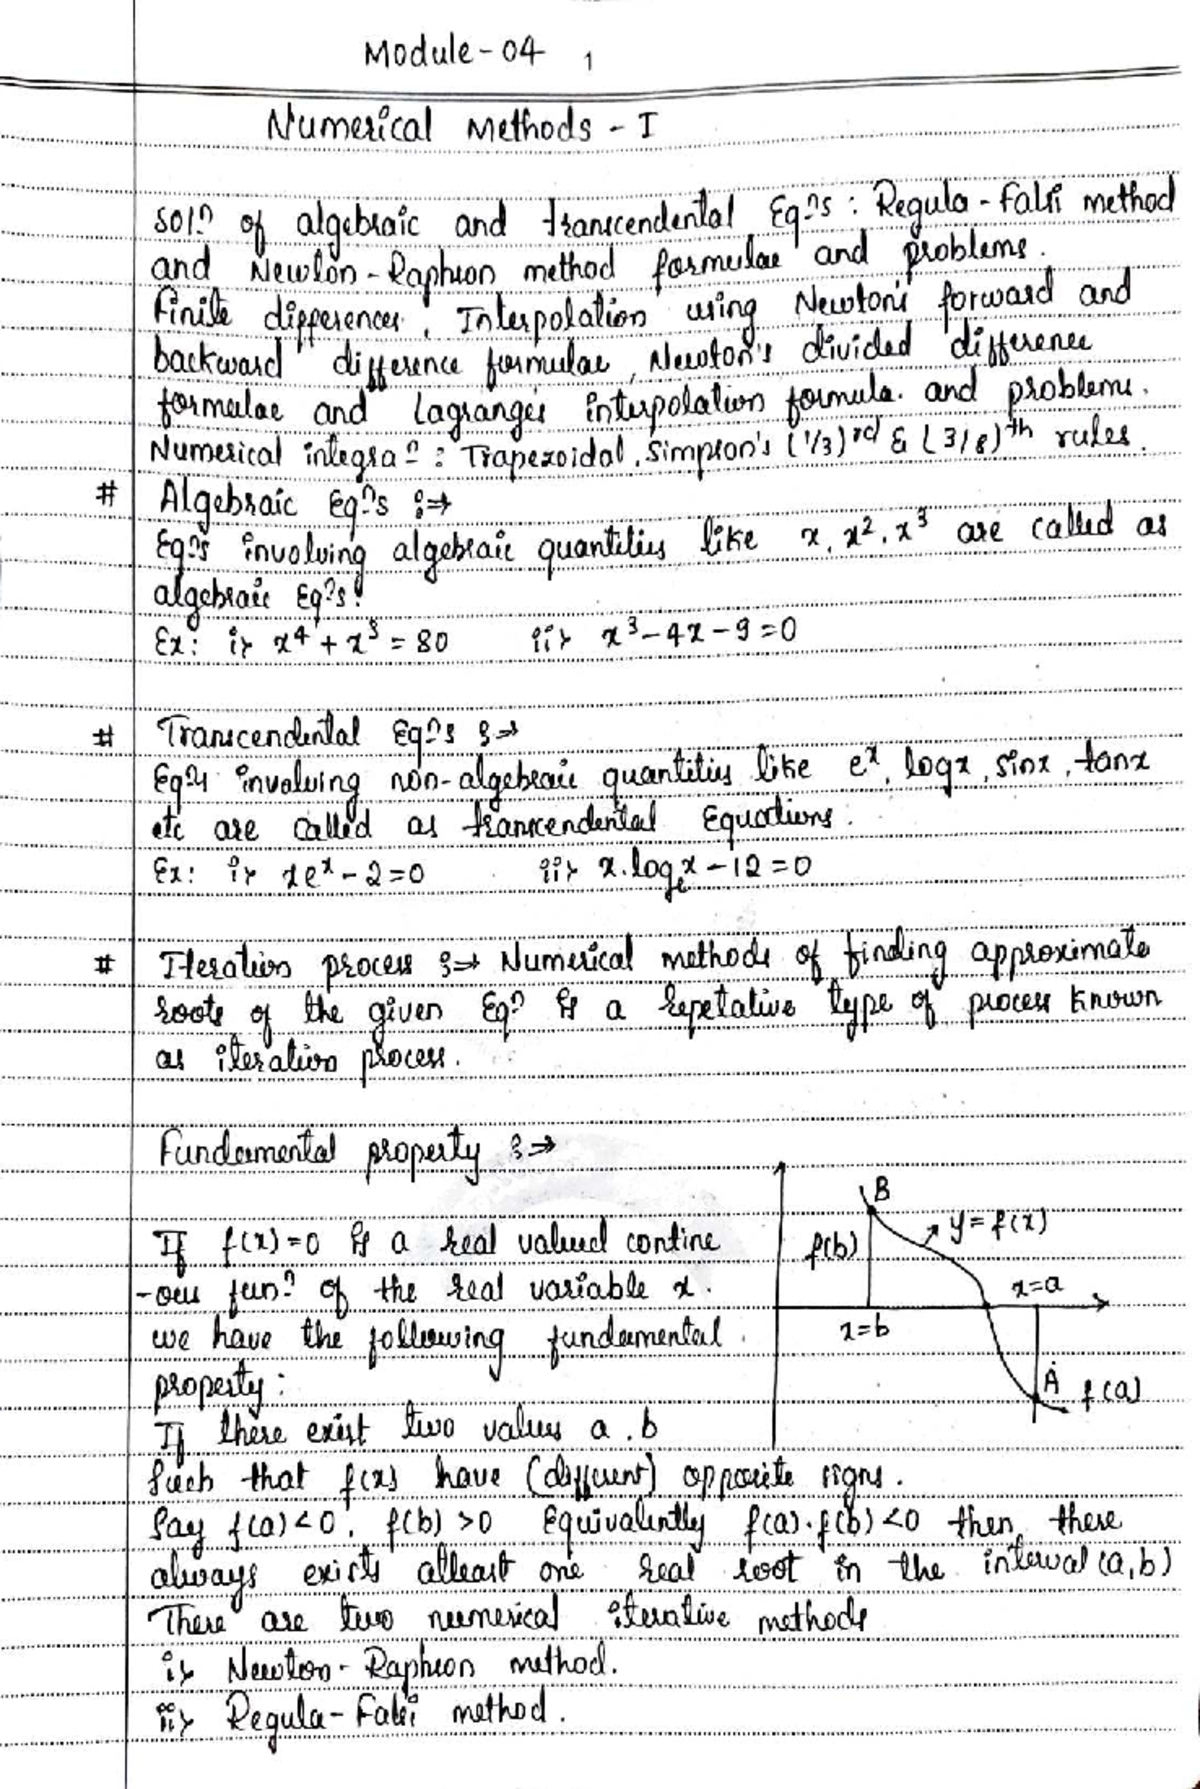 Module-04 1
Numerical Methods - I
Sol? of algebraic and transcendental Eq?s : Regula-Falsi method
and Newton-Raphson method formulae and problems.
Finite differences, Interpolation using Newton's forward and
backward difference formulae, Newton's divided difference
formulae and Lagrange's interpolation formula. and problems.
Numerical integra? : Trapezoidal, Simpson's (1/3)rd & (3/8)th rules.
# Algebraic Eq?s :⇒
Eq?s involving algebraic quantities like x, x², x³ are called as
algebraic Eq?s.
Ex: i> x⁴ + x³ = 80 ii> x³ - 4x - 9 = 0
# Transcendental Eq?s :⇒
Eq?s involving non-algebraic quantities like eˣ, logx, sinx, tanx
etc are called as trancendental Equations.
Ex: i> xeˣ - 2 = 0 ii> x.logₑx - 12 = 0
# Iteration process :⇒ Numerical methods of finding approximate
roots of the given Eq? is a repetative type of process known
as iteration process.
Fundamental property :⇒
If f(x)=0 is a real valued contine
-ous fun? of the real variable x.
we have the following fundamental
property:
If there exist two values a, b
Such that f(x) have (different) opposite signs.
Say f(a)<0, f(b)>0 Equivalently f(a).f(b)<0 then there
always exists atleast one real root in the interval (a,b)
There are two numerical iterative methods
i> Newton-Raphson method.
ii> Regula-Falsi method.
B
y=f(x)
f(b)
x=a
x=b
A f(a)